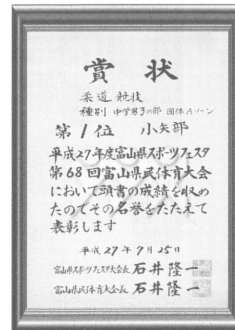 賞状
柔道競技
種別 中学男子の部 団体Aゾーン
第1位 小矢部
平成27年度富山県スポーツフェスタ
第68回富山県民体育大会
において頭書の成績を収め
たのでその名誉をたたえて
表彰します
平成27年7月25日
富山県スポーツフェスタ大会長 石井隆一
富山県民体育大会長 石井隆一